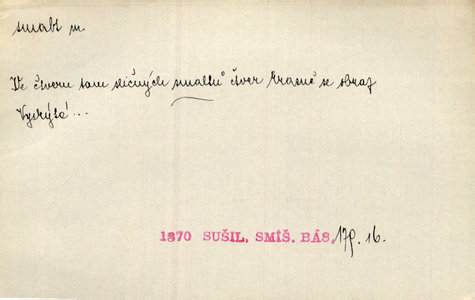 smalt m.
Ve čtveru tam sličných smaltů čtver krásně se obraz
Vyskýtá...
1870 SUŠIL, SMÍŠ. BÁS. 179. 16.